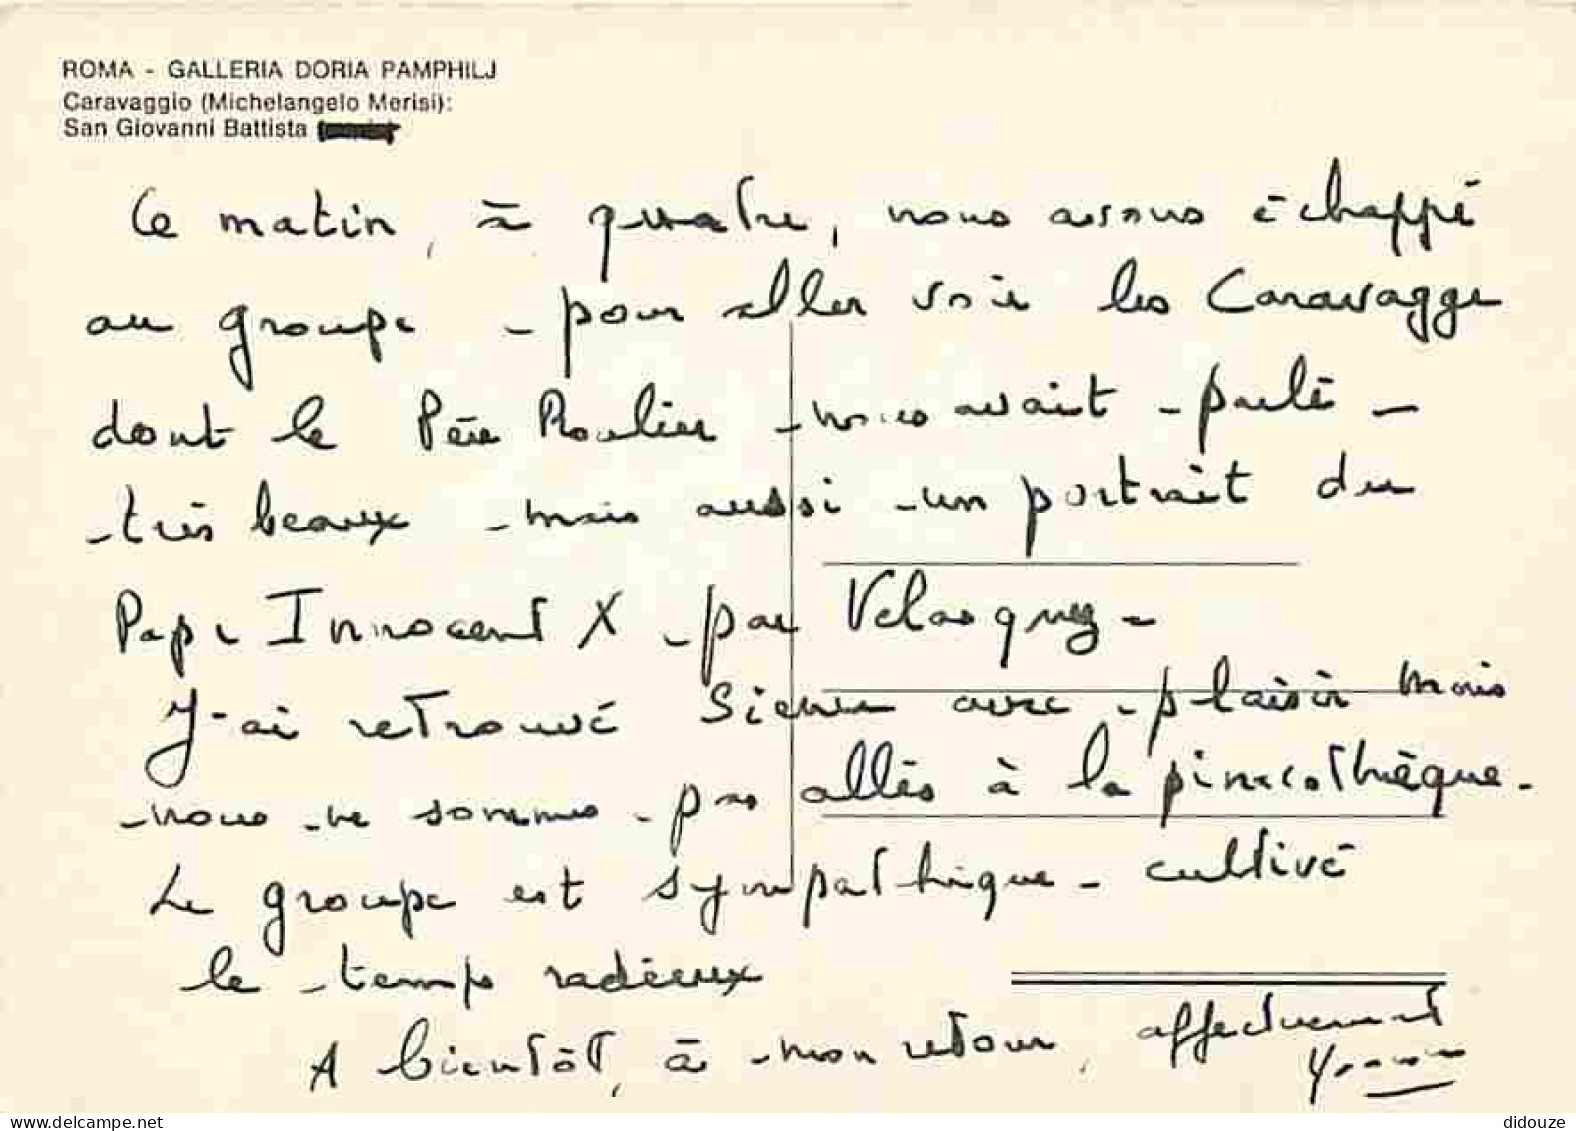 ROMA - GALLERIA DORIA PAMPHILJ
Caravaggio (Michelangelo Merisi):
San Giovanni Battista
Ce matin, à quatre, nous avons échappé
au groupe pour aller voir les Caravagge
dont le Père Roulier nous avait parlé -
très beaux mais aussi un portrait du
Pape Innocent X par Velasquez -
J'ai retrouvé Sienne avec plaisir mais
nous ne sommes pas allés à la pinacothèque.
Le groupe est sympathique - cultivé
le temps radieux
A bientôt, à mon retour, affectueusement
didouze